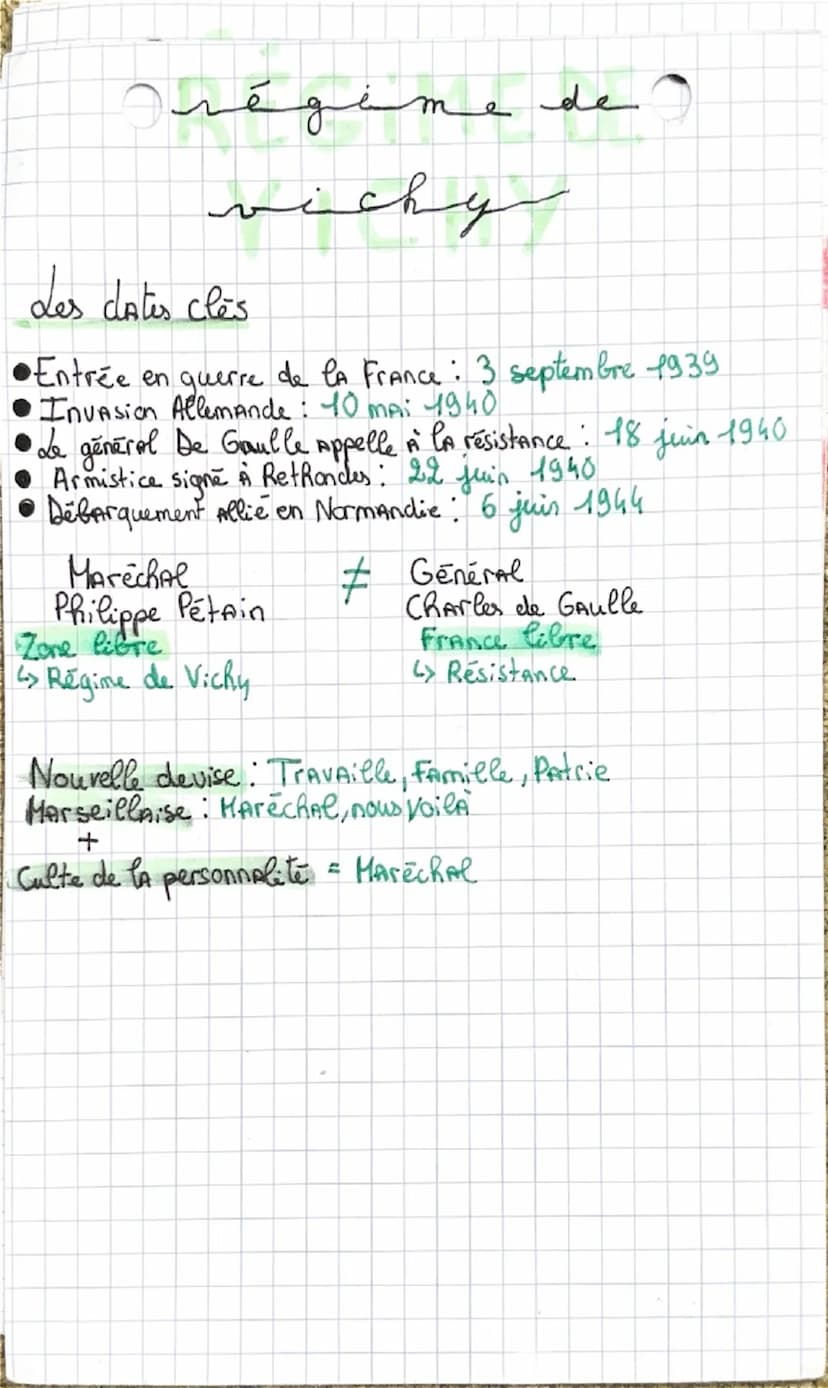 régime de
vichy
RÉGIME DE
VICHY
Les dates clés
● Entrée en guerre de la France : 3 septembre 1939
● Invasion Allemande : 10 mai 1940
● Le général De Gaulle appelle à la résistance : 18 juin 1940
● Armistice signé à Rethondes : 22 juin 1940
● Débarquement allié en Normandie : 6 juin 1944
Maréchal ≠ Général
Philippe Pétain Charles de Gaulle
Zone libre France libre
↳ Régime de Vichy ↳ Résistance
Nouvelle devise : Travaille, Famille, Patrie
Marseillaise : Maréchal, nous voilà
+
Culte de la personnalité = Maréchal